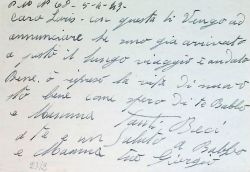 P.M. Nº 68 - 5-4-43-
Caro Livio - con questa ti Vengo ad
annunciare che sono già arrivato
a posto il lungo viaggio è andato
Bene, ò ripreso la vita di nuovo
sto bene come spero di te Babbo
e Mamma Tanti Baci
a te e un Saluto a Babbo
e Mamma Ciò Giorgio